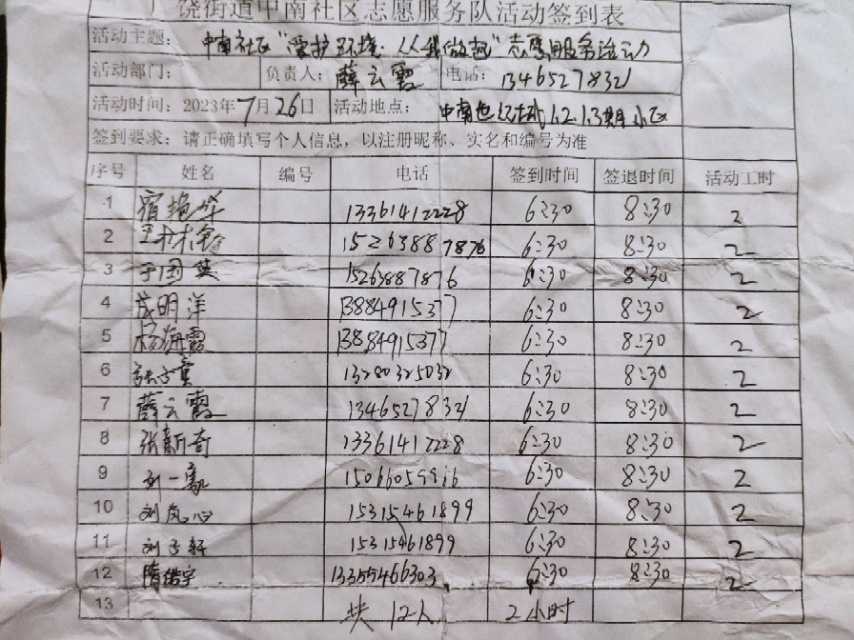 饶街道中南社区志愿服务队活动签到表
活动主题： 中南社区"爱护环境·人人我做起"志愿服务活动
活动部门： 负责人：薛云霞 电话：13465278321
活动时间：2023年7月26日 活动地点：中南世纪城1.2.1.3期小区
签到要求：请正确填写个人信息，以注册昵称、实名和编号为准
序号 姓名 编号 电话 签到时间 签退时间 活动工时
1 宿艳华 13361412228 6:30 8:30 2
2 15263887876 6:30 8:30 2
3 于国英 15263887876 6:30 8:30 2
4 成明洋 13884915377 6:30 8:30 2
5 杨海霞 13884915377 6:30 8:30 2
6 13280325032 6:30 8:30 2
7 薛云霞 13465278321 6:30 8:30 2
8 张新奇 13361412228 6:30 8:30 2
9 刘一 15066059916 6:30 8:30 2
10 刘岚心 15315461899 6:30 8:30 2
11 刘子轩 15315461899 6:30 8:30 2
12 隋皓宇 13355466303 6:30 8:30 2
13 共12人 2小时